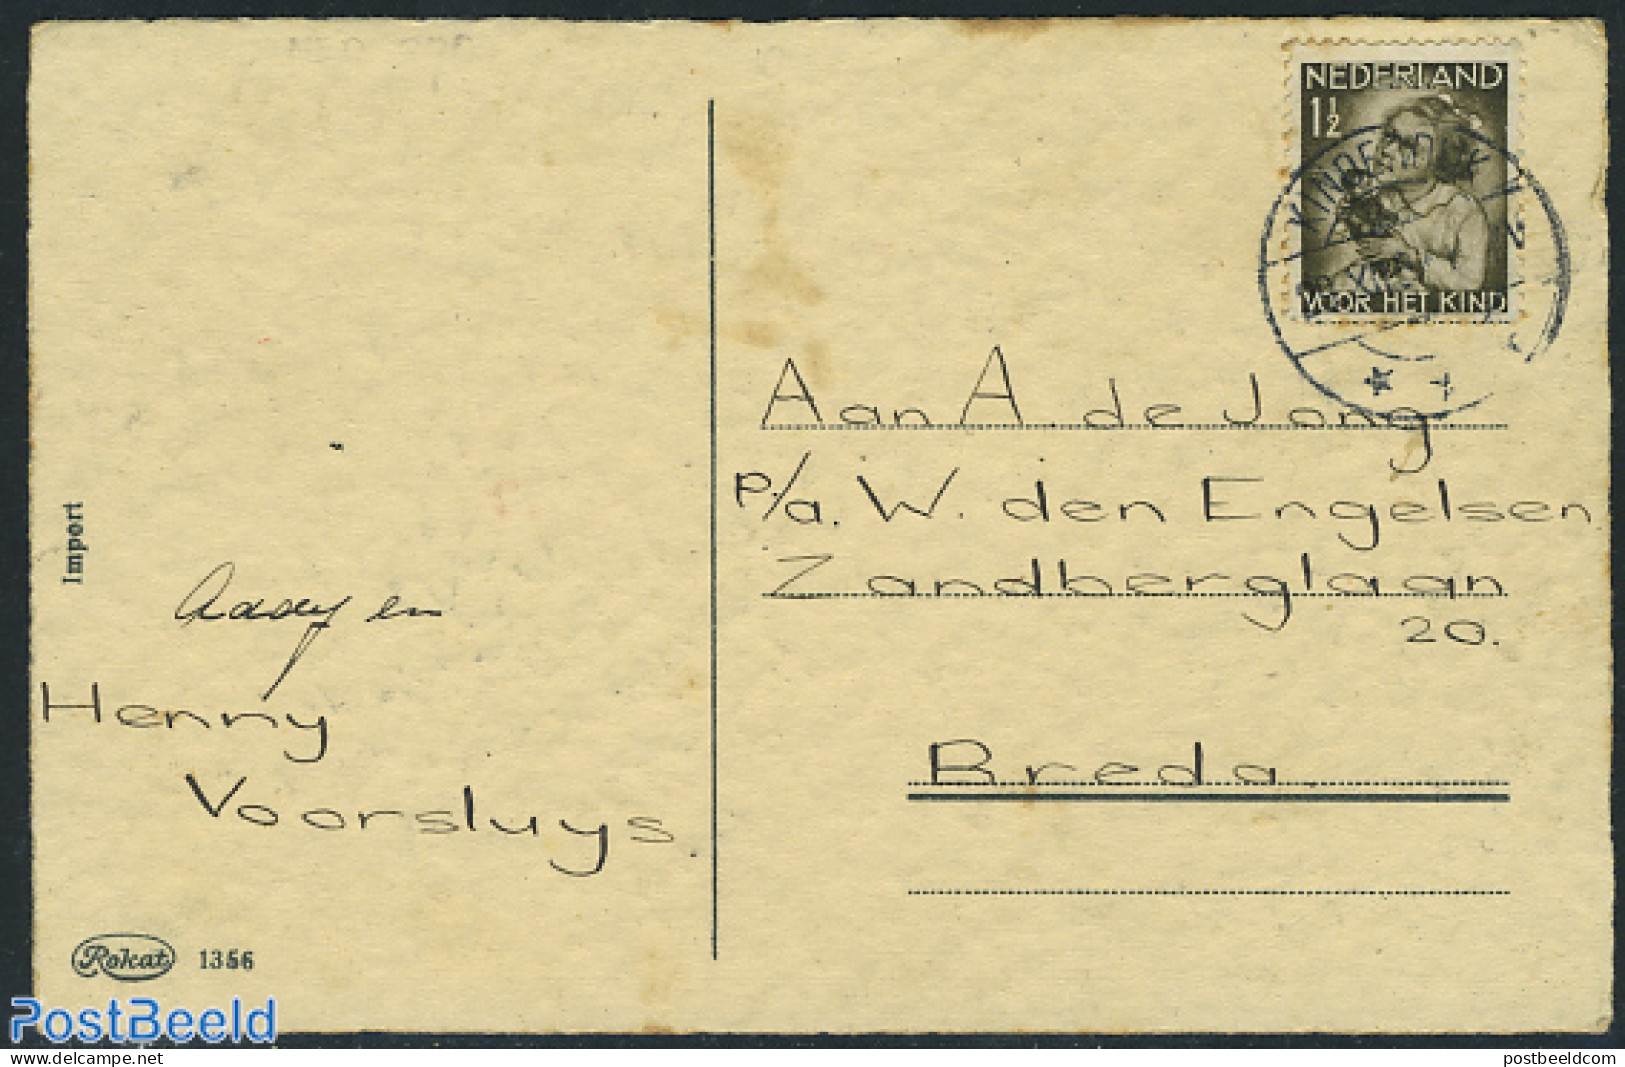 NEDERLAND
1½
VOOR HET KIND
KINDERDIJK
Aan A. de Jong
p/a. W. den Engelsen
Zandberglaan
20.
Breda.
Import
Aady en
Henny
Voorsluys.
Rokat 1356
PostBeeld
www.delcampe.net
postbeeldcom